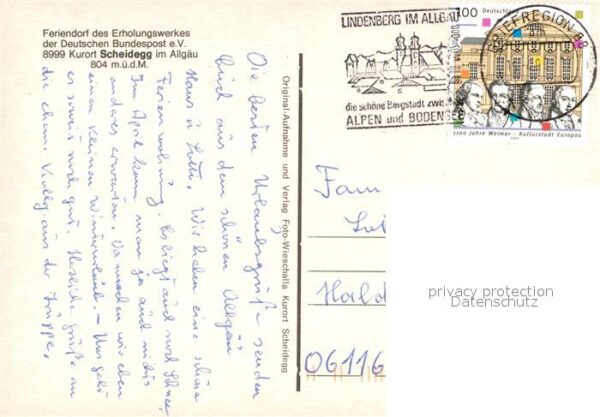 Feriendorf des Erholungswerkes
der Deutschen Bundespost e.V.
8999 Kurort Scheidegg im Allgäu
804 m.ü.d.M.
LINDENBERG IM ALLGÄU
die schöne Bergstadt zwischen
ALPEN und BODENSEE
BRIEFREGION 88
100
Deutschland
1100 Jahre Weimar - Kulturstadt Europas
Original-Aufnahme und Verlag Foto-Wieschalla Kurort Scheidegg
Die besten Urlaubsgrüße senden
Euch aus dem schönen Allgäu
Haus u. Lotti. Wir haben eine schöne
Ferienwohnung. Es liegt auch noch Schnee,
Im April kann man ja auch nichts
anderes erwarten. Da machen wir eben
einen kleinen Winterurlaub. – Uns geht
es soweit noch gut. Herzliche Grüße an
die ehem. Kolleg. aus der Truppe.
Fam
Hald
06116
privacy protection
Datenschutz